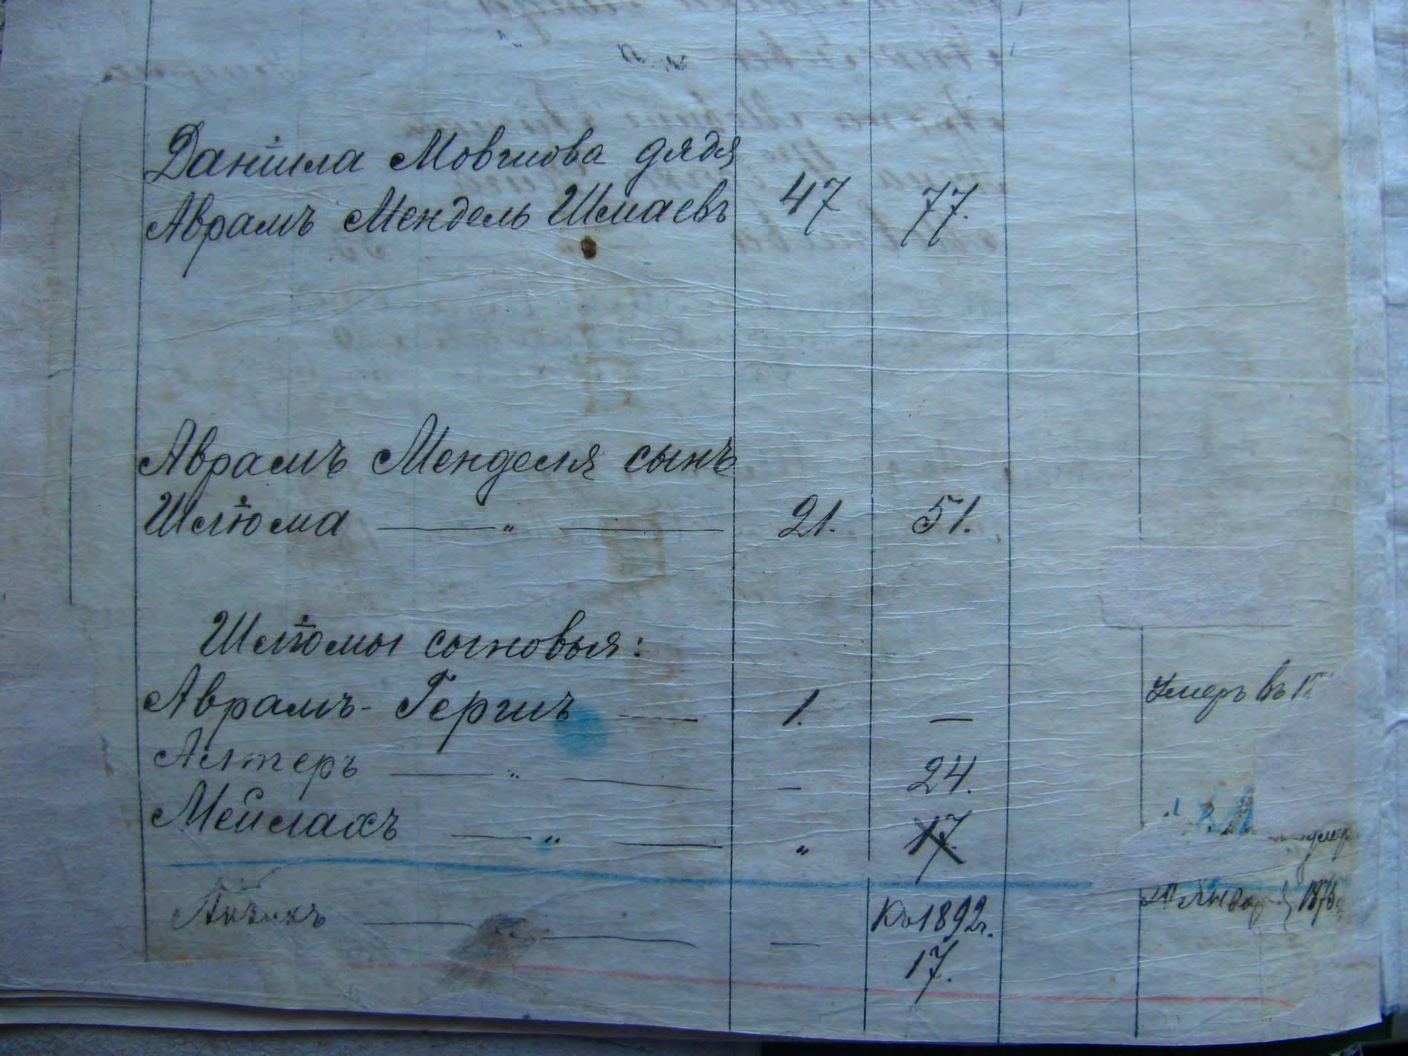 Даніила Мовшова дядя
Аврамъ Мендель Шмаевъ 47 77.
Аврамъ Менделя сынъ
Шлiома — „ — 21. 51.
Шлiомы сыновья:
Аврамъ-Гершъ — 1. — Умеръ въ
Алтеръ — „ — — 24.
Мейлахъ — „ — „ 17. умеръ
— „ — — Къ 1892г. Января
17.